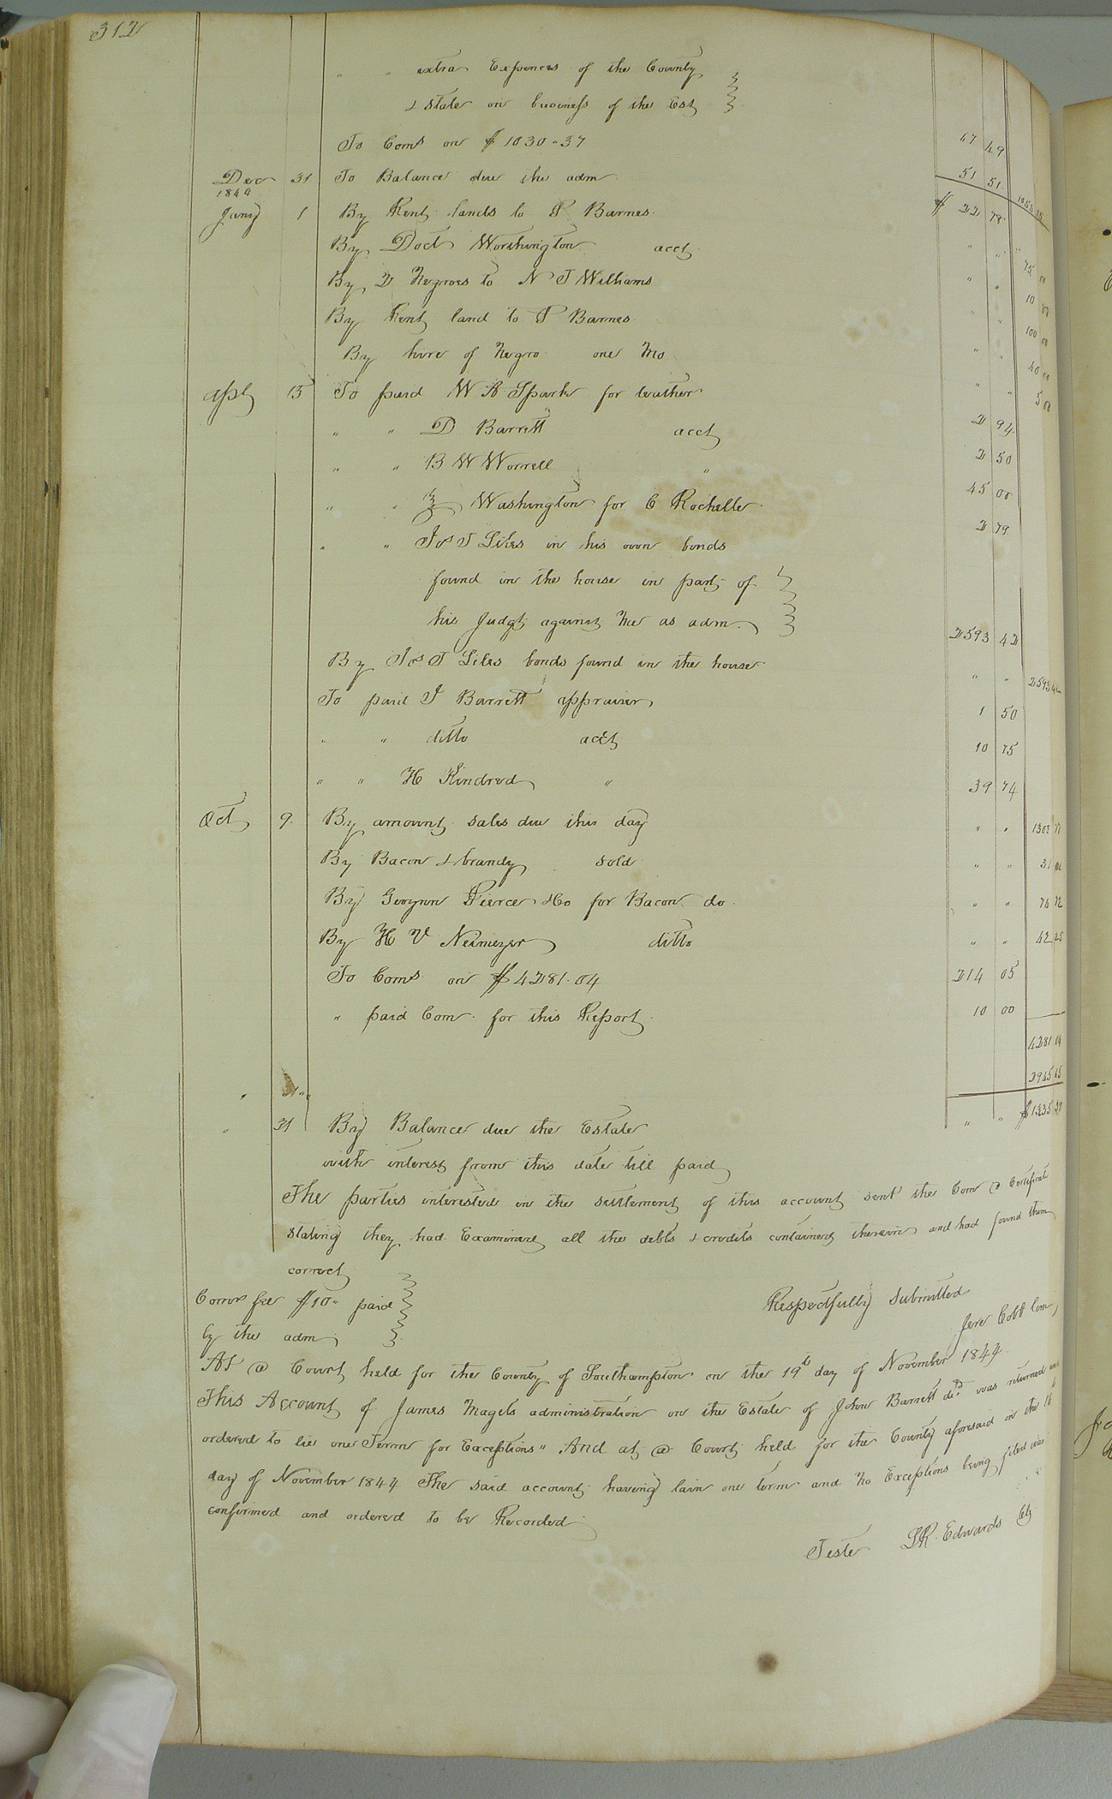 312
" " extra Expences of the County
& State on business of the Est
To Coms on $1030-37 47 49
Dec 31 To Balance due the adm 51 51
1844
Jany 1 By Rent lands to P Barnes $ 22 78
By Doct Worthington acct " " 75 00
By 2 Negroes to N T Williams " " 10 00
By Rent land to P Barnes " " 100 00
By hire of Negro one Mo " " 40 00
apl 15 To paid W A Spark for leather " " 5 00
" " D Barrett acct 2 94
" " B W Worrell " 2 50
" " Washington for C Rochelle 45 00
" " Jos T Liles in his own bonds 2 79
found in the house in part of
his Judgt against Me as adm 2593 42
By Jos T Liles bonds found in the house " " 2593 42
To paid J Barrett appraiser 1 50
" " ditto acct 10 75
" " H Kindred " 39 74
Oct 9 By amount sales due this day " "
By Bacon & brandy sold " "
By Gwynn Pierce & Co for Bacon do " "
By H V Neimeyer ditto " " 42
To Coms on $4281.04 214 05
" paid Com for this Report 10 00
4281
" 31 By Balance due the Estate " "
with interest from this date till paid
The parties interested in the settlement of this account sent the Com a Certificate
stating they had Examined all the debts & credits contained therein and had found them
correct
Comrs fee $10- paid Respectfully Submitted
by the adm Jere Cobb Com
At a Court held for the County of Southampton on the 19th day of November 1844
This Account of James Magets administration on the Estate of John Barrett decd was returned and
ordered to lie one Term for Exceptions" And at a Court held for the County aforesaid on the 18
day of November 1844 The said account having lain one term and no Exceptions being filed was
confirmed and ordered to be Recorded
Teste L R. Edwards Clk